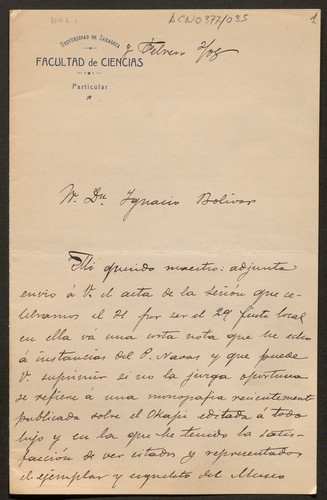 ACN0377/025
1
UNIVERSIDAD DE ZARAGOZA
FACULTAD DE CIENCIAS
Particular
7 Febrero
W. Dn Ignacio Bolivar
Mi querido maestro: adjunta
envio á V. el acta de la sesión que ce-
lebramos el 31 por ser el 29 fiesta local
en ella vá una corta nota que he echo
á instancias del P. Navas y que puede
V. suprimir si no la juzga oportuna
se refiere a una monografia recientemente
publicada sobre el Okapi editada á todo
lujo y en la que he tenido la satis-
facción de ver citados y representados
el ejemplar y esqueleto del Museo